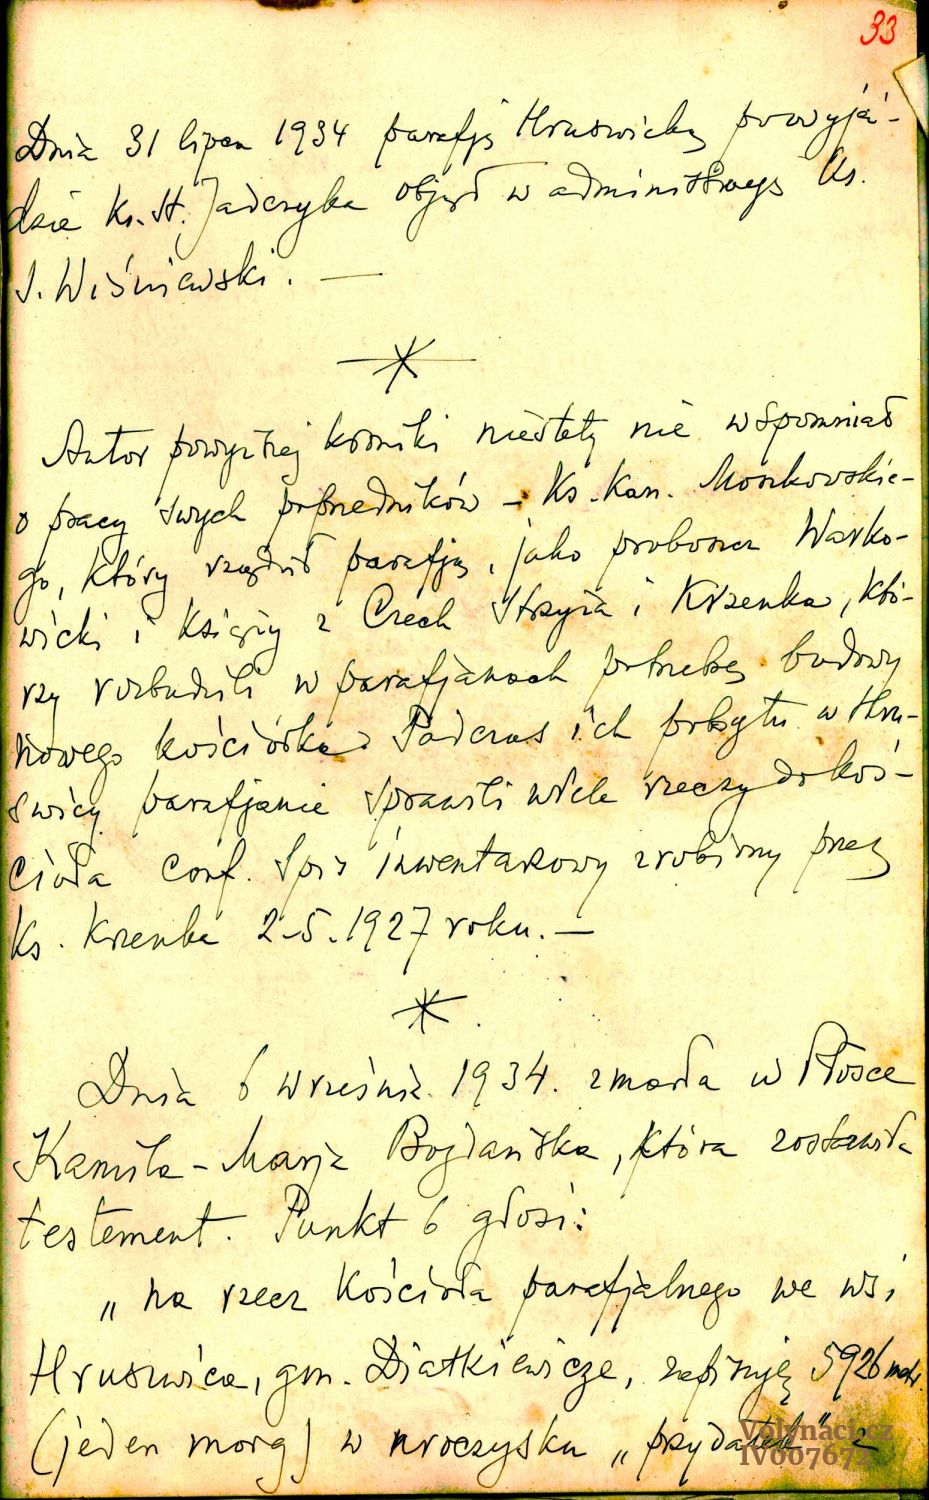 33
Dnia 31 lipca 1934 parafję Hruswicką po wyjá-
dzie ks. St. Jadczyka objął w administrację ks.
J. Wiśniewski. —
Autor powyższej kroniki niestety nie wspomniał
o pracy swych poprzedników – Ks. Kan. Moszkowskie-
go, który rządził parafją, jako proboszcz Warko-
wicki i Księży z Czech Stryża i Krzenka, któ-
rzy rozbudzili w parafjanach potrzebę budowy
nowego kościółka. Podczas ich pobytu w Hru-
świcy parafjanie sprawili wiele rzeczy do koś-
cioła conf. Spis inwentarzowy zrobiony przez
Ks. Krzenka 2-5.1927 roku. —
Dnia 6 września 1934. zmarła w Płosce
Kamila - Marja Bogdańska, która zostawiła
testament. Punkt 6 głosi:
„na rzecz Kościoła parafjalnego we wsi
Hruswica, gm. Diatkiewicze, zapisuję 5926 metr.
(jeden morg) w uroczysku „przydatek" z
Volynaci.cz
IV007672